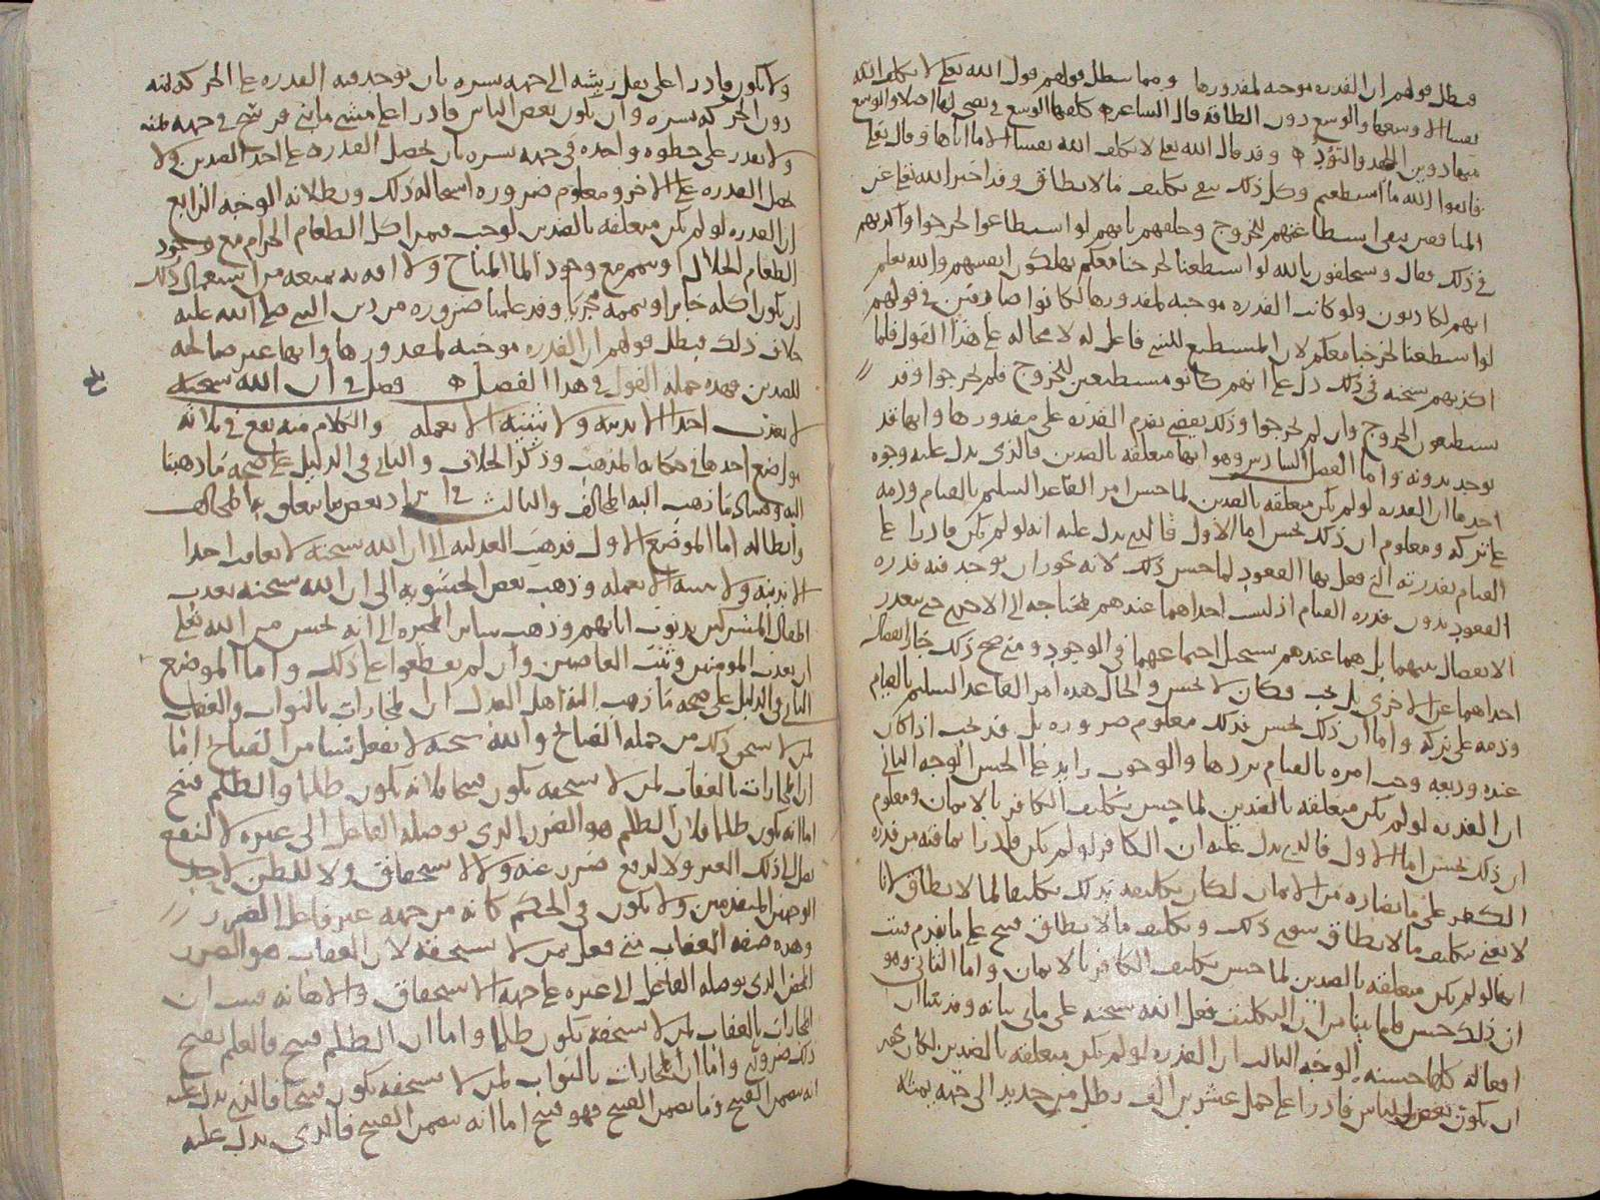 فبطل قولهم ان القدره موجبه لمقدورها ومما يبطل قولهم قول الله تعلى لا يكلف الله
نفسا الا وسعها والوسع دون الطاقه قال الشاعر كلفها الوسع في لها اصلا والوسع
منها دون الجهد والتؤد وقد قال الله تعلى لا يكلف الله نفسا الا ما اتاها وقال تعلى
فاتقوا الله ما استطعتم وكل ذلك ينفي تكليف ما لا يطاق وقد اخبر الله تعلى عن
المنافقين بنفي استطاعتهم للخروج وحلفهم بانهم لو استطاعوا لخرجوا واكذبهم
في ذلك فقال وسيحلفون بالله لو استطعنا لخرجنا معكم يهلكون انفسهم والله يعلم
انهم لكاذبون ولو كانت القدره موجبه لمقدورها لكانوا صادقين في قولهم
لو استطعنا لخرجنا معكم لان المستطيع للشي فاعل له لا محاله على هذا القول فلما
اكذبهم سبحنه في ذلك دل على انهم كانو مستطيعين للخروج فلم يخرجوا وقد
يستطيعون الخروج وان لم يخرجوا وذلك يقضي بتقدم القدره على مقدورها وانها قد
توجد بدونه واما الفصل السادس وهو انها متعلقه بالضدين فالذي يدل عليه وجوه
احدها ان القدره لو لم تكن متعلقه بالضدين لما حسن امر القاعد السليم بالقيام وذمه
على تركه ومعلوم ان ذلك يحسن اما الاول فالذي يدل عليه انه لو لم يكن قادرا على
القيام بقدرته التي فعل بها القعود لما حسن ذلك لانه يجوز ان توجد فيه قدره
القعود بدون قدره القيام اذ ليست احداهما عندهم محتاجه الى الاخرى حتى يتعذر
الانفصال بينهما بل هما عندهم يستحيل اجتماعهما في الوجود ومتى صح ذلك جاز انفصال
احداهما عن الاخرى بل يجب فكان لا يحسن والحال هذه امر القاعد السليم بالقيام
وذمه على تركه واما ان ذلك يحسن فذلك معلوم ضروره بل قد يجب اذا كان
عنده وديعه وجب امره بالقيام بردها والوجوب زايد على الحسن الوجه الثاني
ان القدره لو لم تكن متعلقه بالضدين لما حسن تكليف الكافر بالايمان ومعلوم
ان ذلك يحسن اما الاول فالذي يدل عليه ان الكافر لو لم يكن قادرا بما فيه من قدره
الكفر على ما يضاده من الايمان لكان تكليفه بذلك تكليفا لما لا يطاق لانا
لا نعني بتكليف ما لا يطاق سوى ذلك وتكليف ما لا يطاق قبيح على ما تقدم فثبت
انها لو لم تكن متعلقه بالضدين لما حسن تكليف الكافر بالايمان واما الثاني وهو
ان ذلك حسن فلما بينا من ان التكليف فعل الله سبحنه على ما ياتي بيانه وقد بينا ان
افعاله كلها حسنه الوجه الثالث ان القدره لو لم تكن متعلقه بالضدين لكان يجوز
ان يكون بعض الناس قادرا على حمل عشرين الف رطل من حديد الى جهه يمنه
ولا يكون قادرا على نقل ريشه الى جهه يسره بان توجد فيه القدره على الحركه يمنه
دون الحركه يسره وان يكون بعض الناس قادرا على مشي مايتي فرسخ في جهه يمنه
ولا يقدر على خطوه واحده في جهه يسره بان تحصل القدره على احد الضدين ولا
تحصل القدره على الاخر ومعلوم ضروره استحاله ذلك وبطلانه الوجه الرابع
ان القدره لو لم تكن متعلقه بالضدين لوجب فيمن اكل الطعام الحرام مع وجود
الطعام الحلال وتيمم مع وجود الما المباح ولا افه به تمنعه من استعمال ذلك
ان يكون اكله جايزا وتيممه مجزيا وقد علمنا ضروره من دين النبي صلى الله عليه
خلاف ذلك فبطل قولهم ان القدره موجبه لمقدورها وانها غير صالحه
للضدين فهذه جمله القول في هذا الفصل فصل في ان الله سبحنه
لا يعذب احدا الا بذنبه ولا يثيبه الا بعمله والكلام منه يقع في ثلاثه
مواضع احدها في حكايه المذهب وذكر الخلاف والثاني في الدليل على صحه ما ذهبنا
اليه وفساد ما ذهب اليه المخالف والثالث في ايراد بعض ما يتعلق به المخالف
وابطاله اما الموضع الاول فذهبت العدليه الى ان الله سبحنه لا يعاقب احدا
الا بذنبه ولا يثيبه الا بعمله وذهب بعض الحشويه الى ان الله سبحنه يعذب
اطفال المشركين بذنوب ابائهم وذهب ساير المجبره الى انه يحسن من الله تعلى
ان يعذب المومنين ويثيب العاصين وان لم يقطعوا على ذلك واما الموضع
الثاني في الدليل على صحه ما ذهب اليه اهل العدل ان المجازات بالثواب والعقاب
لمن لا يستحق ذلك من جمله القبائح والله سبحنه لا يفعل شيا من القبائح اما
ان المجازات بالعقاب لمن لا يستحقه يكون قبيحا فلانه يكون ظلما والظلم قبيح
اما انه يكون ظلما فلان الظلم هو الضرر الذي يوصله الفاعل الى غيره لا لنفع
يصل الى ذلك الغير ولا لدفع ضرر عنه ولا لاستحقاق ولا للظن لاحد
الوجهين المتقدمين ولا يكون في الحكم كانه من جهه غير فاعل الضرر
وهذه صفه العقاب متى فعل بمن لا يستحقه لان العقاب هو الضرر
المحض الذي يوصله الفاعل الى غيره على جهه الاستحقاق والاهانه فثبت ان
المجازات بالعقاب لمن لا يستحقه يكون ظلما واما ان الظلم قبيح فالعلم بقبح
ذلك ضروري واما ان المجازات بالثواب لمن لا يستحقه يكون قبيحا فالذي يدل عليه
انه يتضمن القبيح وما يتضمن القبيح فهو قبيح اما انه يتضمن القبيح فالذي يدل عليه